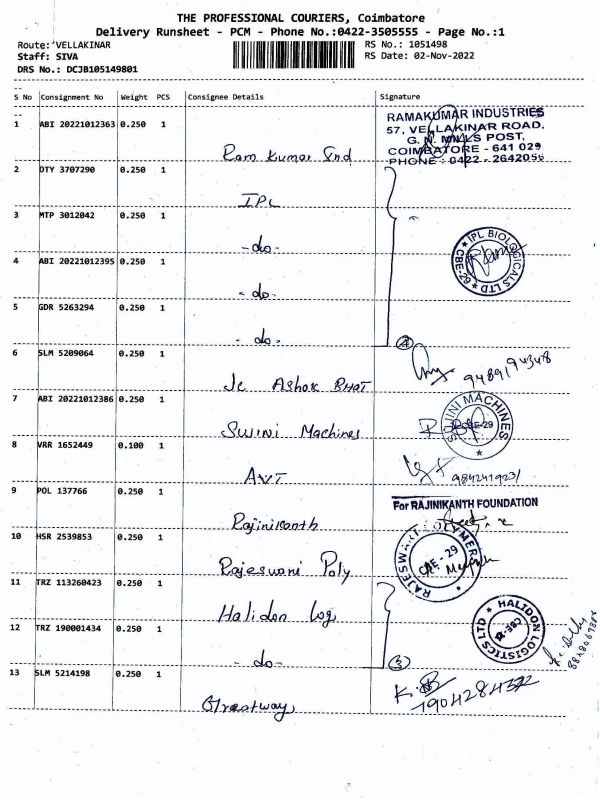 THE PROFESSIONAL COURIERS, Coimbatore
Delivery Runsheet - PCM - Phone No.:0422-3505555 - Page No.:1
Route: VELLAKINAR RS No.: 1051498
Staff: SIVA RS Date: 02-Nov-2022
DRS No.: DCJB105149801
S No Consignment No Weight PCS Consignee Details Signature
1 ABI 20221012363 0.250 1 Ram Kumar Ind
RAMAKUMAR INDUSTRIES
57, VELLAKINAR ROAD,
G. N. MILLS POST,
COIMBATORE - 641 029
PHONE : 0422 - 2642056
2 DTY 3707290 0.250 1 IPL
3 MTP 3012042 0.250 1 -do-
IPL BIOLOGICALS LTD
CBE-29
4 ABI 20221012395 0.250 1 -do-
5 GDR 5263294 0.250 1 -do- 4
6 SLM 5209064 0.250 1 Jc Ashok BHAT
7 ABI 20221012386 0.250 1 SWINI Machines
SWINI MACHINES
CBE-29
8 VRR 1652449 0.100 1 AVT
9 POL 137766 0.250 1 Rajinikanth
For RAJINIKANTH FOUNDATION
10 HSR 2539853 0.250 1 Rajeswani Poly
CBE - 29
11 TRZ 113260423 0.250 1 Halidon Log
HALIDON LOGISTICS LTD
12 TRZ 190001434 0.250 1 -do-
13 SLM 5214198 0.250 1